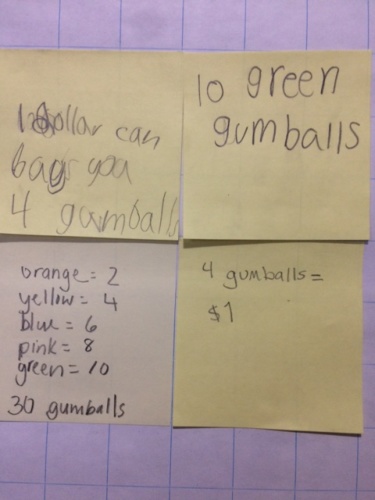 1 dollar can
bays you
4 gumballs
10 green
gumballs
orange = 2
yellow = 4
blue = 6
pink = 8
green = 10
30 gumballs
4 gumballs =
$1